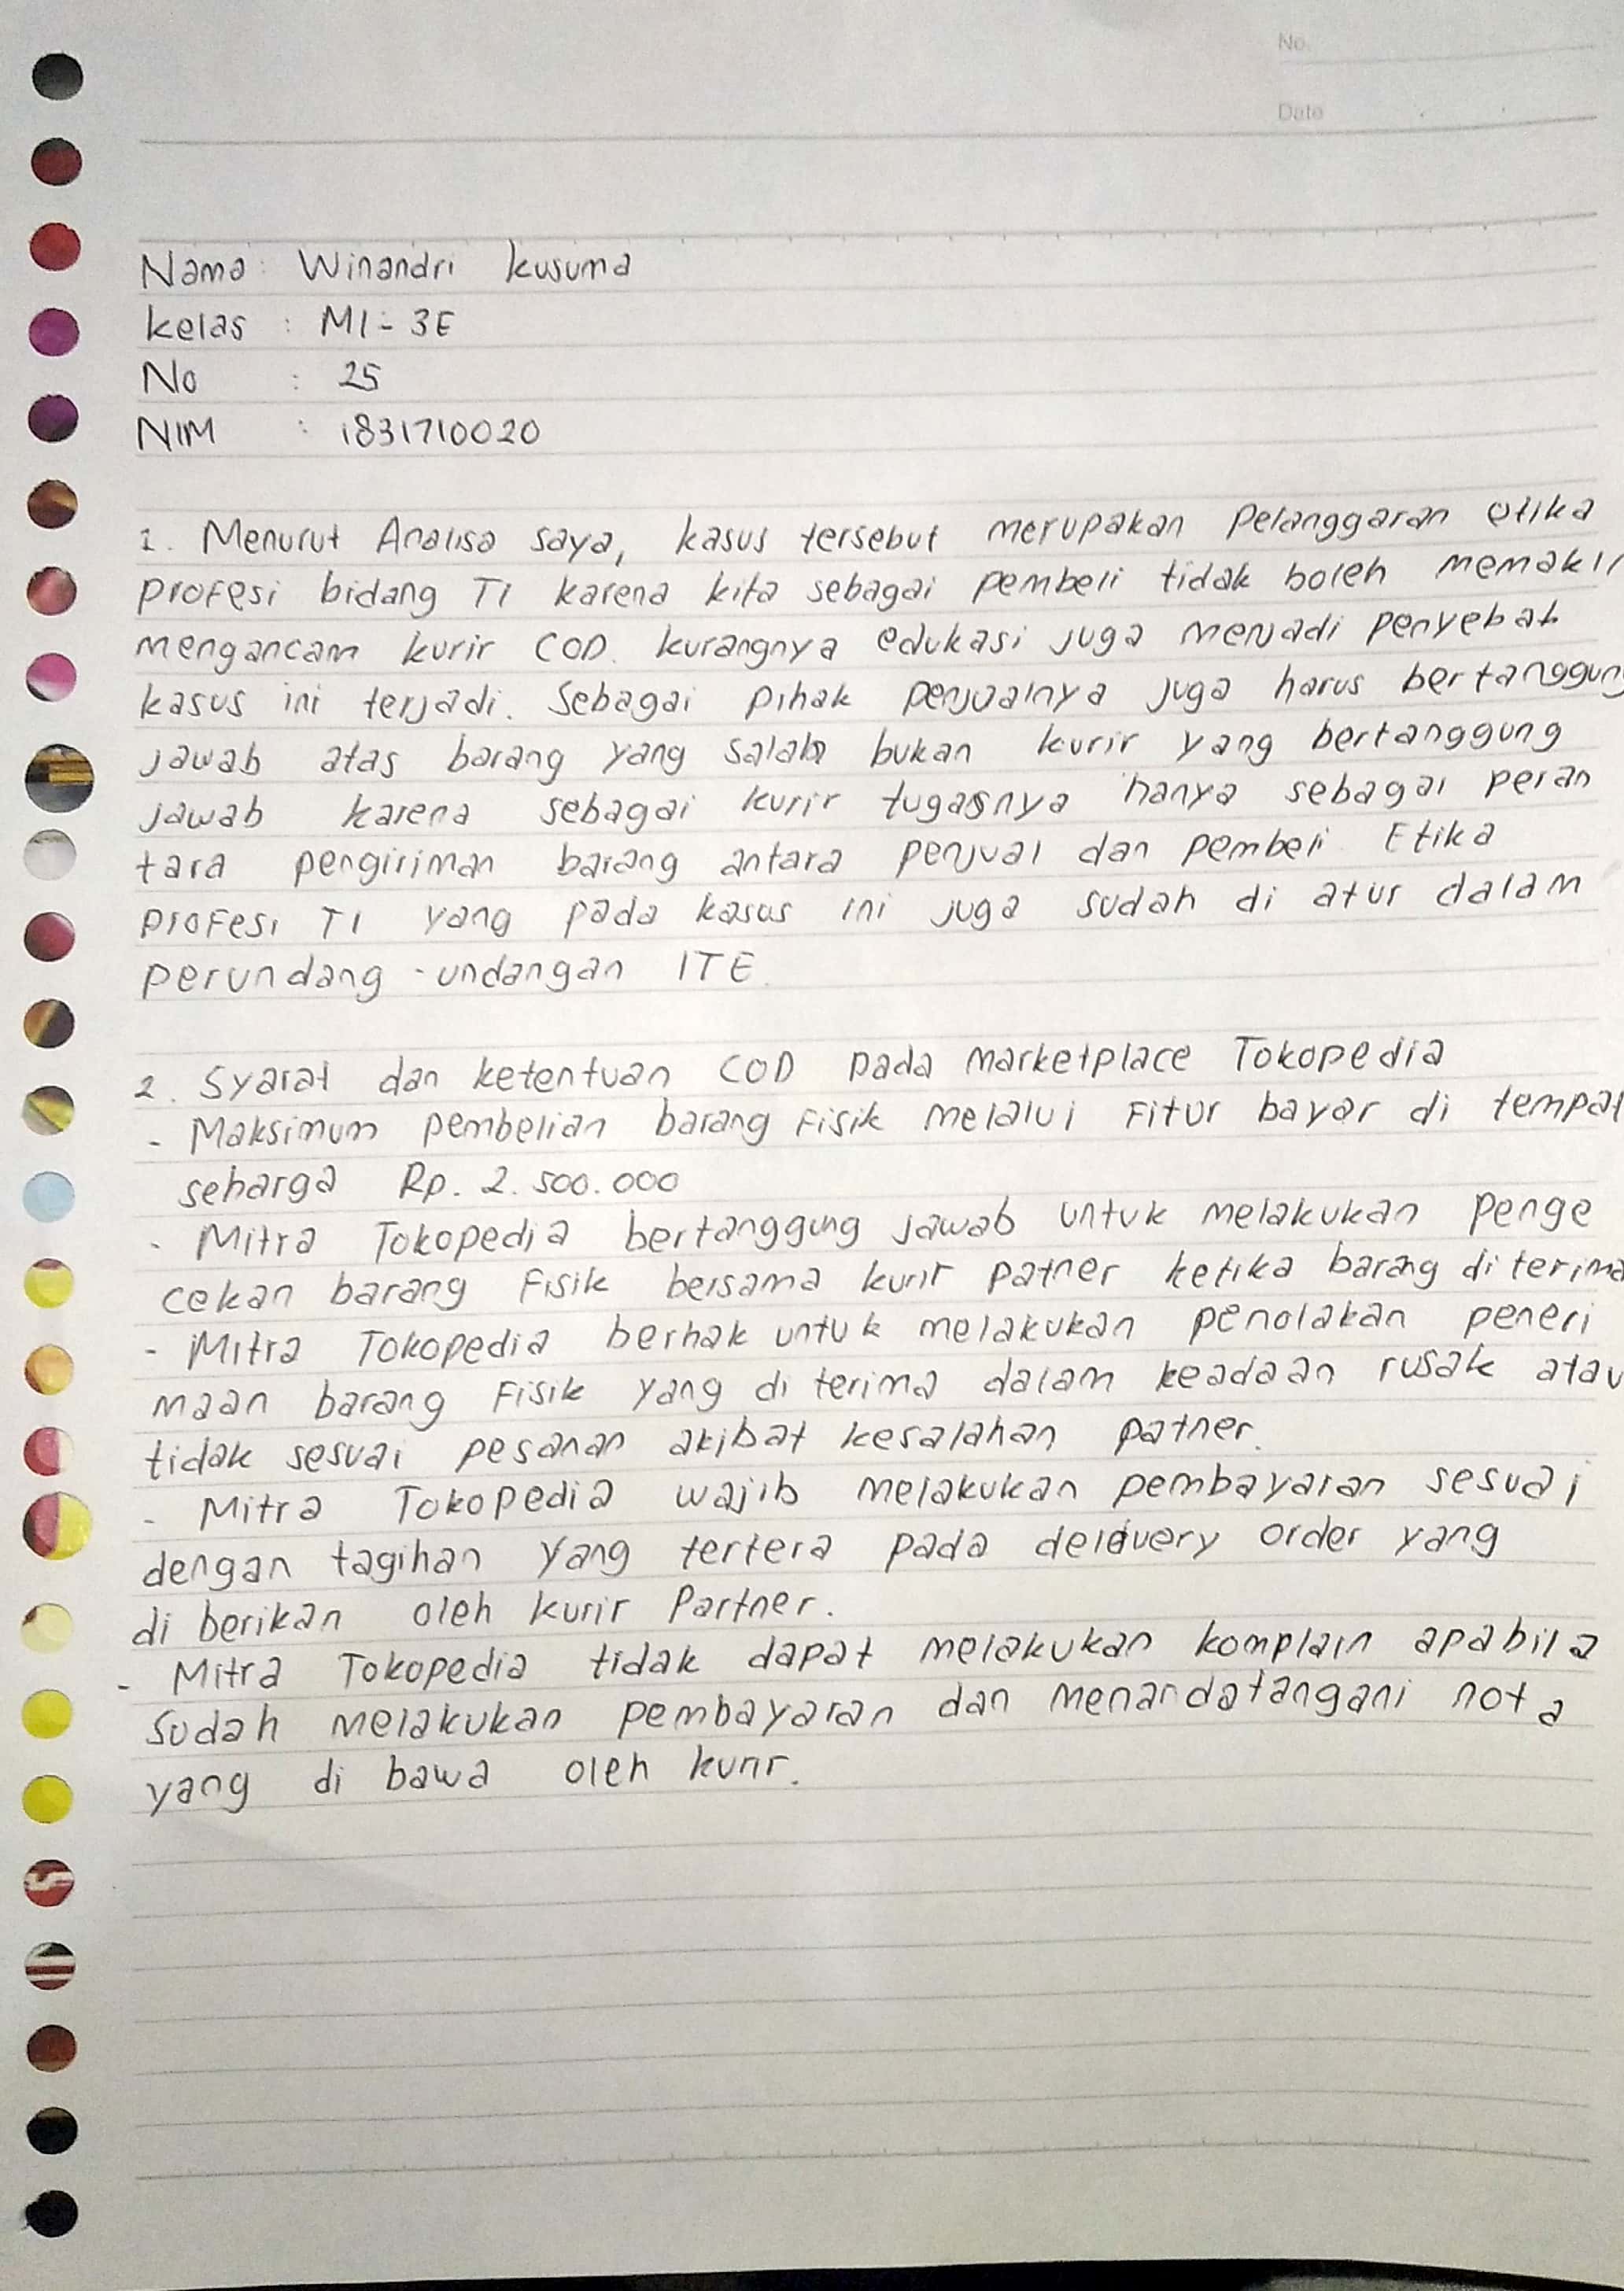 No.
Date
Nama : Winandri kusuma
kelas : MI - 3E
No : 25
NIM : 1831710020
1. Menurut Analisa saya, kasus tersebut merupakan pelanggaran etika
profesi bidang TI karena kita sebagai pembeli tidak boleh memaki,
mengancam kurir COD. kurangnya edukasi juga menjadi penyebab
kasus ini terjadi. Sebagai pihak penjualnya juga harus bertanggung
jawab atas barang yang salah bukan kurir yang bertanggung
jawab karena sebagai kurir tugasnya hanya sebagai peran
tara pengiriman barang antara penjual dan pembeli. Etika
profesi TI yang pada kasus ini juga sudah di atur dalam
perundang - undangan ITE.
2. Syarat dan ketentuan COD pada marketplace Tokopedia
- Maksimum pembelian barang Fisik melalui Fitur bayar di tempat
seharga Rp. 2. 500.000
- Mitra Tokopedia bertanggung jawab untuk melakukan penge
cekan barang Fisik bersama kurir patner ketika barang di terima
- Mitra Tokopedia berhak untuk melakukan penolakan peneri
maan barang Fisik yang di terima dalam keadaan rusak atau
tidak sesuai pesanan akibat kesalahan patner.
- Mitra Tokopedia wajib melakukan pembayaran sesuai
dengan tagihan yang tertera pada delivery order yang
di berikan oleh kurir Partner.
- Mitra Tokopedia tidak dapat melakukan komplain apabila
sudah melakukan pembayaran dan menandatangani nota
yang di bawa oleh kurir.